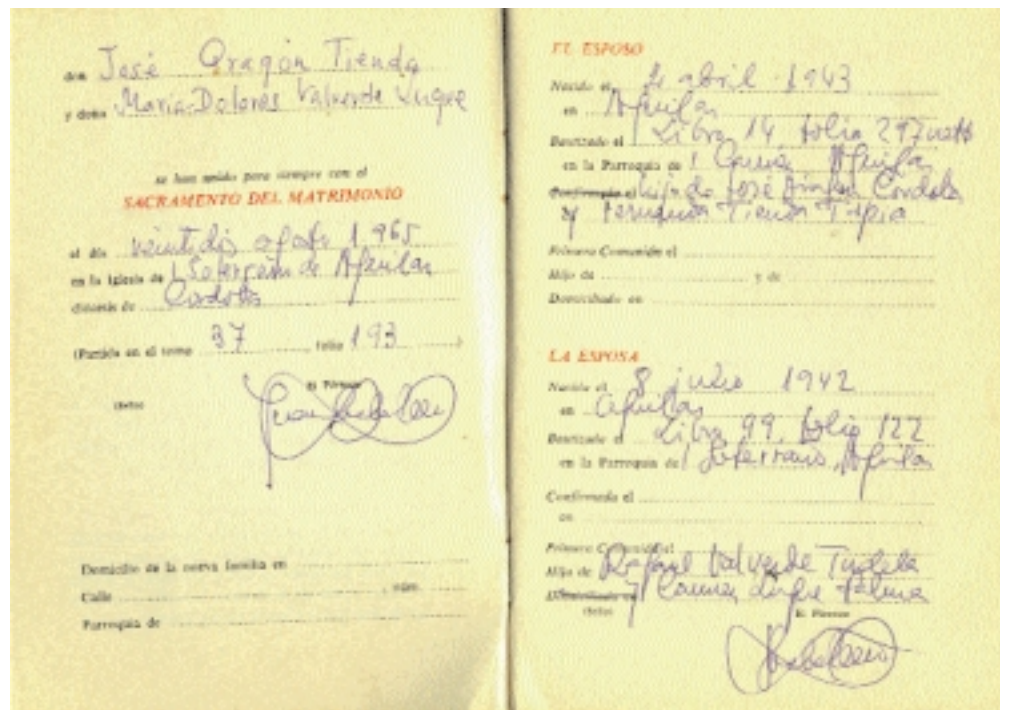 don José Aragón Tienda
y doña María-Dolores Valverde Luque
se han unido para siempre con el
SACRAMENTO DEL MATRIMONIO
el día veintidis agosto 1.965
en la Iglesia de Soterraño de Aguilar
diócesis de Córdoba
(Partida en el tomo 37, folio 193)
El Párroco
(Sello)
Domicilio de la nueva familia en
Calle , núm.
Parroquia de
EL ESPOSO
Nacido el 4 abril 1943
en Aguilar
Bautizado el Libro 14 folio 297
en la Parroquia de Carmen Aguilar
Confirmado el hijo de José Aragón
y Tienda Tapia
Primera Comunión el
Hijo de y de
Domiciliado en
LA ESPOSA
Nacida el 8 julio 1942
en Aguilar
Bautizada el Libro 99, folio 122
en la Parroquia de Soterraño, Aguilar
Confirmada el
en
Primera Comunión el
Hija de Rafael Valverde Tudela
Domiciliada en y Carmen Luque Palma
(Sello) El Párroco